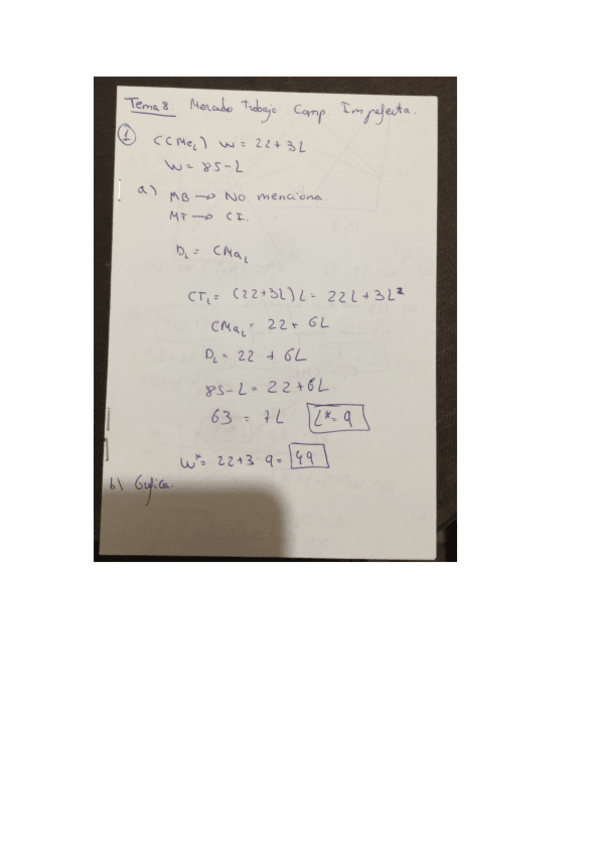 Tema 8 Mercado trabajo Comp. Imperfecta.
① C(Me_L) W = 22 + 3L
W = 85 - L
a) MB → No menciona.
MT → CI.
D_L = CMa_L
CT_L = (22+3L)L = 22L + 3L²
CMa_L = 22 + 6L
D_L = 22 + 6L
85 - L = 22 + 6L
63 = 7L L* = 9
W* = 22 + 3·9 = 49
b) Gráfica.